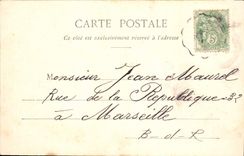 CARTE POSTALE
Ce côté est exclusivement réservé à l'adresse
5
Monsieur Jean Maurel
Rue de la République 22
à Marseille
B-d-R